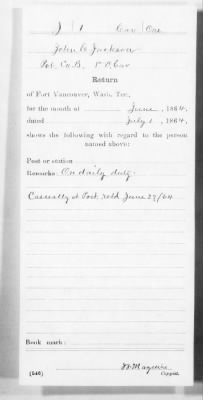 J 1 Cav Ore
John C Jackson
Pvt. Co B, 1 O. Cav
Return
of Fort Vancouver, Wash. Ter.,
for the month of June, 1864,
dated July 1, 1864,
shows the following with regard to the person
named above:
Post or station
Remarks: On daily duty
Casually at Post since June 29/64
Book mark:
Maguire
(546) Copyist.